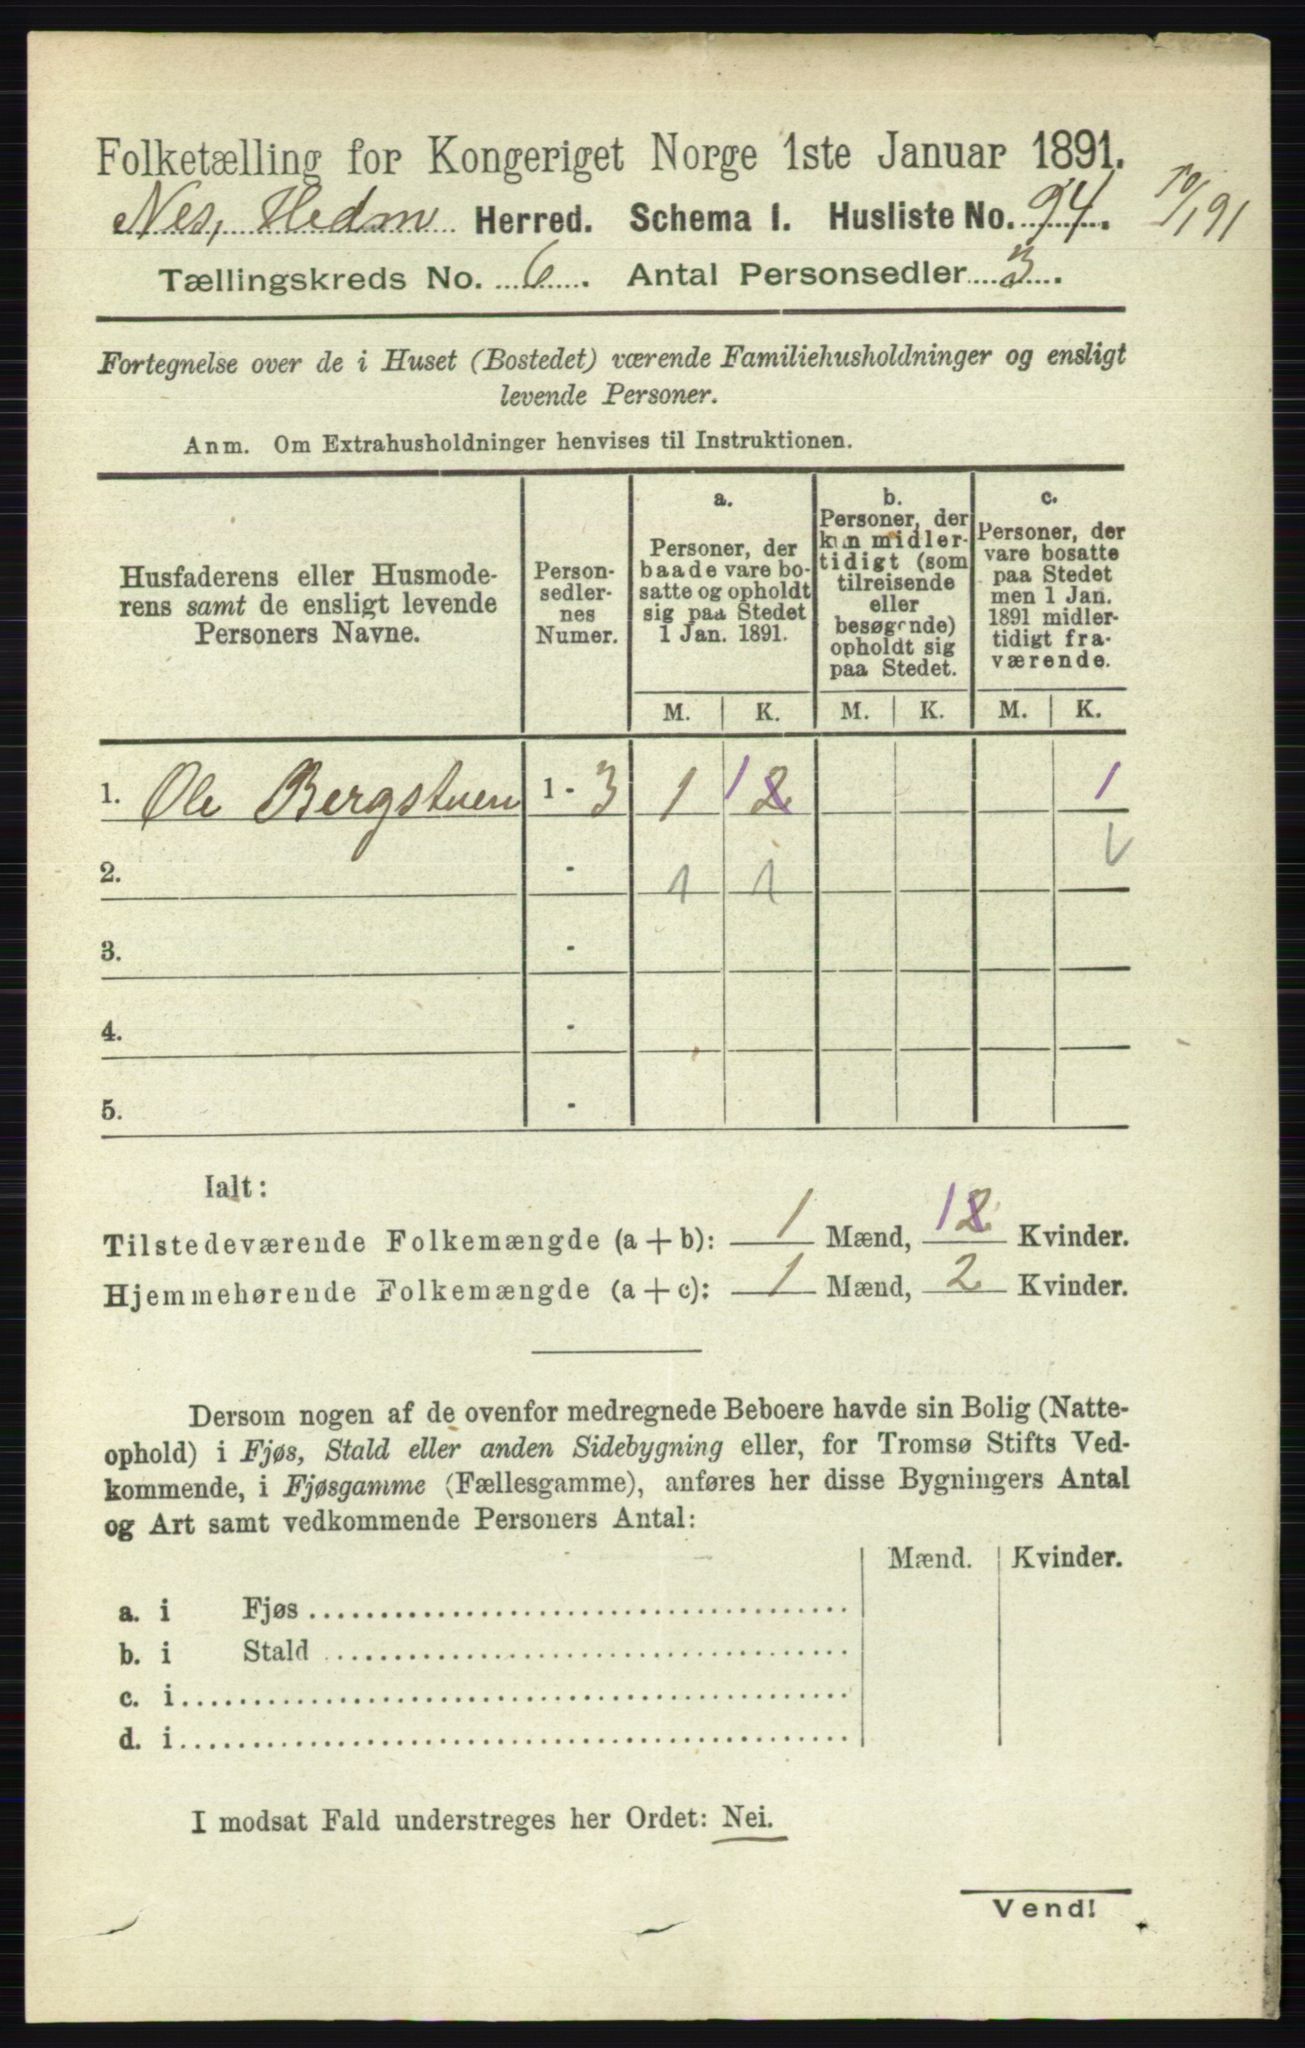 Folketælling for Kongeriget Norge 1ste Januar 1891.
Nes, Hedm Herred. Schema I. Husliste No. 94. 10/1 91
Tællingskreds No. 6. Antal Personsedler 3.
Fortegnelse over de i Huset (Bostedet) værende Familiehusholdninger og ensligt
levende Personer.
Anm. Om Extrahusholdninger henvises til Instruktionen.
Husfaderens eller Husmode-
rens samt de ensligt levende
Personers Navne.
Person-
sedler-
nes
Numer.
a.
Personer, der
baade vare bo-
satte og opholdt
sig paa Stedet
1 Jan. 1891.
b.
Personer, der
kun midler-
tidigt (som
tilreisende
eller
besøgende)
opholdt sig
paa Stedet.
c.
Personer, der
vare bosatte
paa Stedet
men 1 Jan.
1891 midler-
tidigt fra-
værende.
M. K. M. K. M. K.
1. Ole Bergstuen 1 - 3 1 1 2 1
2. - 1 1
3. -
4. -
5. -
Ialt:
Tilstedeværende Folkemængde (a + b): 1 Mænd, 1 2 Kvinder.
Hjemmehørende Folkemængde (a + c): 1 Mænd, 2 Kvinder.
Dersom nogen af de ovenfor medregnede Beboere havde sin Bolig (Natte-
ophold) i Fjøs, Stald eller anden Sidebygning eller, for Tromsø Stifts Ved-
kommende, i Fjøsgamme (Fællesgamme), anføres her disse Bygningers Antal
og Art samt vedkommende Personers Antal:
Mænd. Kvinder.
a. i Fjøs
b. i Stald
c. i
d. i
I modsat Fald understreges her Ordet: Nei.
Vend!